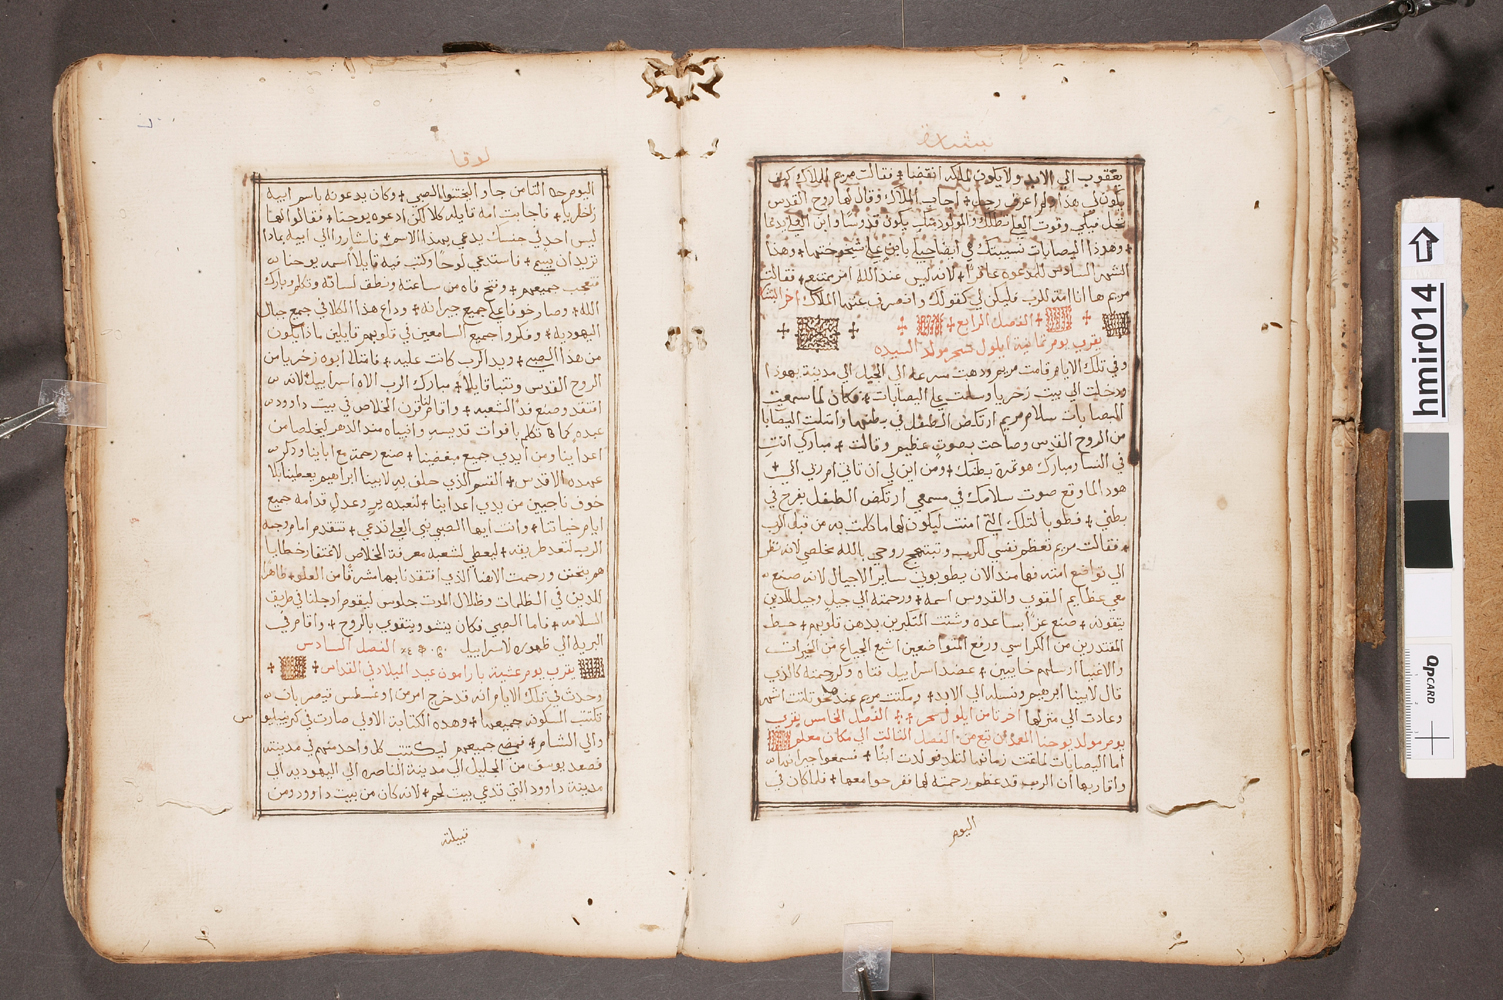 بشارة
يعقوب الي الابد ولا يكون لملكه انقضا + فقالت مريم للملاك كيف
يكون لي هذا ولم اعرف رجل + اجاب الملاك وقال لها روح القدس
يحل عليكي وقوت العلي تظلك والمولود منكي يكون قدوسا وابن العلي يدعا
+ وهوذا اليصابات نسيبتك هي ايضا حبلي بابن علي شيخوختها + وهذا
الشهر السادس للمدعوه عاقرا + لانه ليس عند الله امر يمتنع + فقالت
مريم ها انا امة للرب فليكن لي كقولك وانصرف عنها الملاك اخر البشارة
+ الفصل الرابع +
يقرب يوم ثمانية ايلول سحر مولد السيده
وفي تلك الايام قامت مريم ودهبت مسرعه الي الجبل الي مدينة يهوذا
ودخلت الي بيت زخريا وسلمت علي اليصابات + فكان لما سمعت
اليصابات سلام مريم ارتكض الطفل في بطنها وامتلت اليصابا
من الروح القدس وصاحت بصوت عظيم وقالت + مباركه انتي
في النسا ومبارك هو ثمرة بطنك + ومن اين لي ان تاتي ام ربي الي +
هودا لما وقع صوت سلامك في مسمعي ارتكض الطفل بفرح في
بطني + فطوبا لتلك التي امنت ليكون لها ما كلمت به من قبل الرب
+ فقالت مريم تعظم نفسي للرب وتبتهج روحي بالله مخلصي لانه نظر
الي تواضع امته فها منذ الان يطوبوني ساير الاجيال لانه صنع
معي عظايم القوي والقدوس اسمه + ورحمته الي جيل وجيل للدين
يتقونه + صنع عزا بساعده وشتت المتكبرين بدهن قلوبهم + حط
المقتدرين من الكراسي ورفع المتواضعين اشبع الجياع من الخيرات
والاغنيا ارسلهم خايبين + عضد اسراييل فتاه ولرحمته كالدي
قال لابينا ابرهيم ونسله الي الابد + ومكثت مريم عندها نحو تلت اشهر
وعادت الي منزلها اخر تامن ايلول سحر + الفصل الخامس يقرب
يوم مولد يوحنا المعمدان تبع من الفصل الثالت الي مكان معلم
اما اليصابات لما تمت زمانها لتلد ولدت ابنا + فسمعوا جيرانها
واقاربها ان الرب قد عظم رحمته لها ففرحوا معها + فلما كان في
اليوم
لوقا
اليوم التامن جاوا ليختنوا الصبي + وكان يدعونه باسم ابيه
زاخريا + فاجابت امه قايله كلا لكن ادعوه يوحنا + فقالوا لها
ليس احد في جنسك يدعي بهذا الاسم + فاشاروا الي ابيه مادا
تريد ان يسم + فاستدعي لوحا وكتب فيه قايلا اسمه يوحنا
فتعجب جميعهم + وفتح فاه من ساعته ونطق لسانه وتكلم وبارك
الله + وصار خوفا علي جميع جيرانه + وداع هذا الكلام في جميع جبال
اليهودية + وفكروا جميع السامعين في قلوبهم قايلين ماذا يكون
من هذا الصبي + ويد الرب كانت عليه + فامتلا ابوه زخريا من
الروح القدس وتنبا قايلا + مبارك الرب الاه اسراييل لانه
افتقد وصنع فدا لشعبه + واقام لنا قرن الخلاص في بيت داوود
عبده كما تكلم بافوات قديسه وانبياه مند الدهر ليخلصنا من
اعداينا ومن ايدي جميع مبغضينا + صنع رحمة مع اباينا ودكر
عهده الاقدس + القسم الذي حلف به لابينا ابراهيم يعطينا بلا
خوف ناجيين من يدي اعداينا + لنعبده ببر وعدل قدامه جميع
ايام حياتنا + وانت ايها الصبي نبي العلي تدعي + تتقدم امام وجه
الرب لتعد طريقه + ليعطي لشعبه معرفة الخلاص لاغتفار خطايا
هم بتحنن ورحمت الاهنا الذي افتقدنا بها مشرقا من العلو + ظاهرا
للدين في الظلمات وظلال الموت جلوس ليقوم ارجلنا في طريق
السلامه + فاما الصبي فكان ينشو ويتقوي بالروح + واقام في
البريه الي ظهوره لاسراييل الفصل السادس
يقرب يوم عشية بارامون عيد الميلاد في القداس +
وحدث في تلك الايام انه قد خرج امر من اوغسطس قيصر بان
تكتتب المسكونه جميعها + وهده الكتابة الاولي صارت في كيرينيوس
والي الشام + فمضي جميعهم ليكتتب كل واحد منهم في مدينته
فصعد يوسف من الجليل الي مدينة الناصره الي اليهوديه الي
مدينة داوود التي تدعي بيت لحم + لانه كان من بيت داوود ومن
قبيلته
hmir014
QPCARD